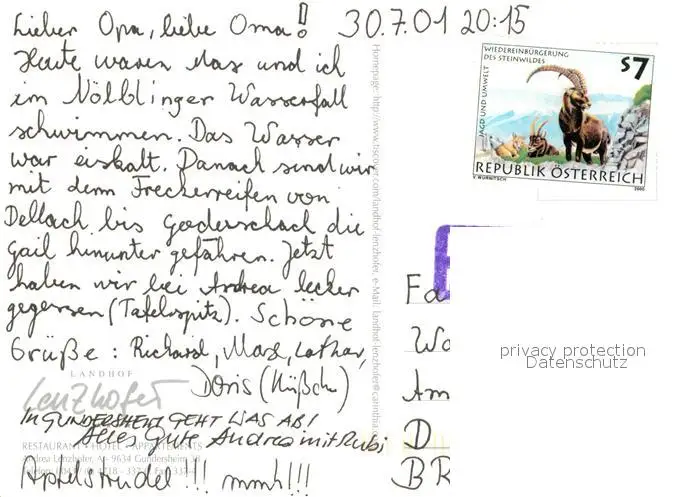 Lieber Opa, liebe Oma! 30.7.01 20:15
Heute waren Max und ich
im Nölblinger Wasserfall
schwimmen. Das Wasser
war eiskalt. Danach sind wir
mit dem Freckerreifen von
Dellach bis Goderschach die
Gail hinunter gefahren. Jetzt
haben wir bei Andrea lecker
gegessen (Tafelspitz). Schöne
Grüße: Richard, Max, Lothar,
Doris (Küßchen)
IN GUNDERSHEIM GEHT WAS AB!
Alles Gute Andrea mit Rubi
Apfelstrudel !!! mmh!!!
LANDHOF
Lenzhofer
RESTAURANT · HOTEL · APPARTEMENTS
Andrea Lenzhofer, A - 9634 Gundersheim
WIEDEREINBÜRGERUNG
DES STEINWILDES
JAGD UND UMWELT
S7
REPUBLIK ÖSTERREICH
V. WURNITSCH
2000
Fa
Wa
Am
D
BR
privacy protection
Datenschutz